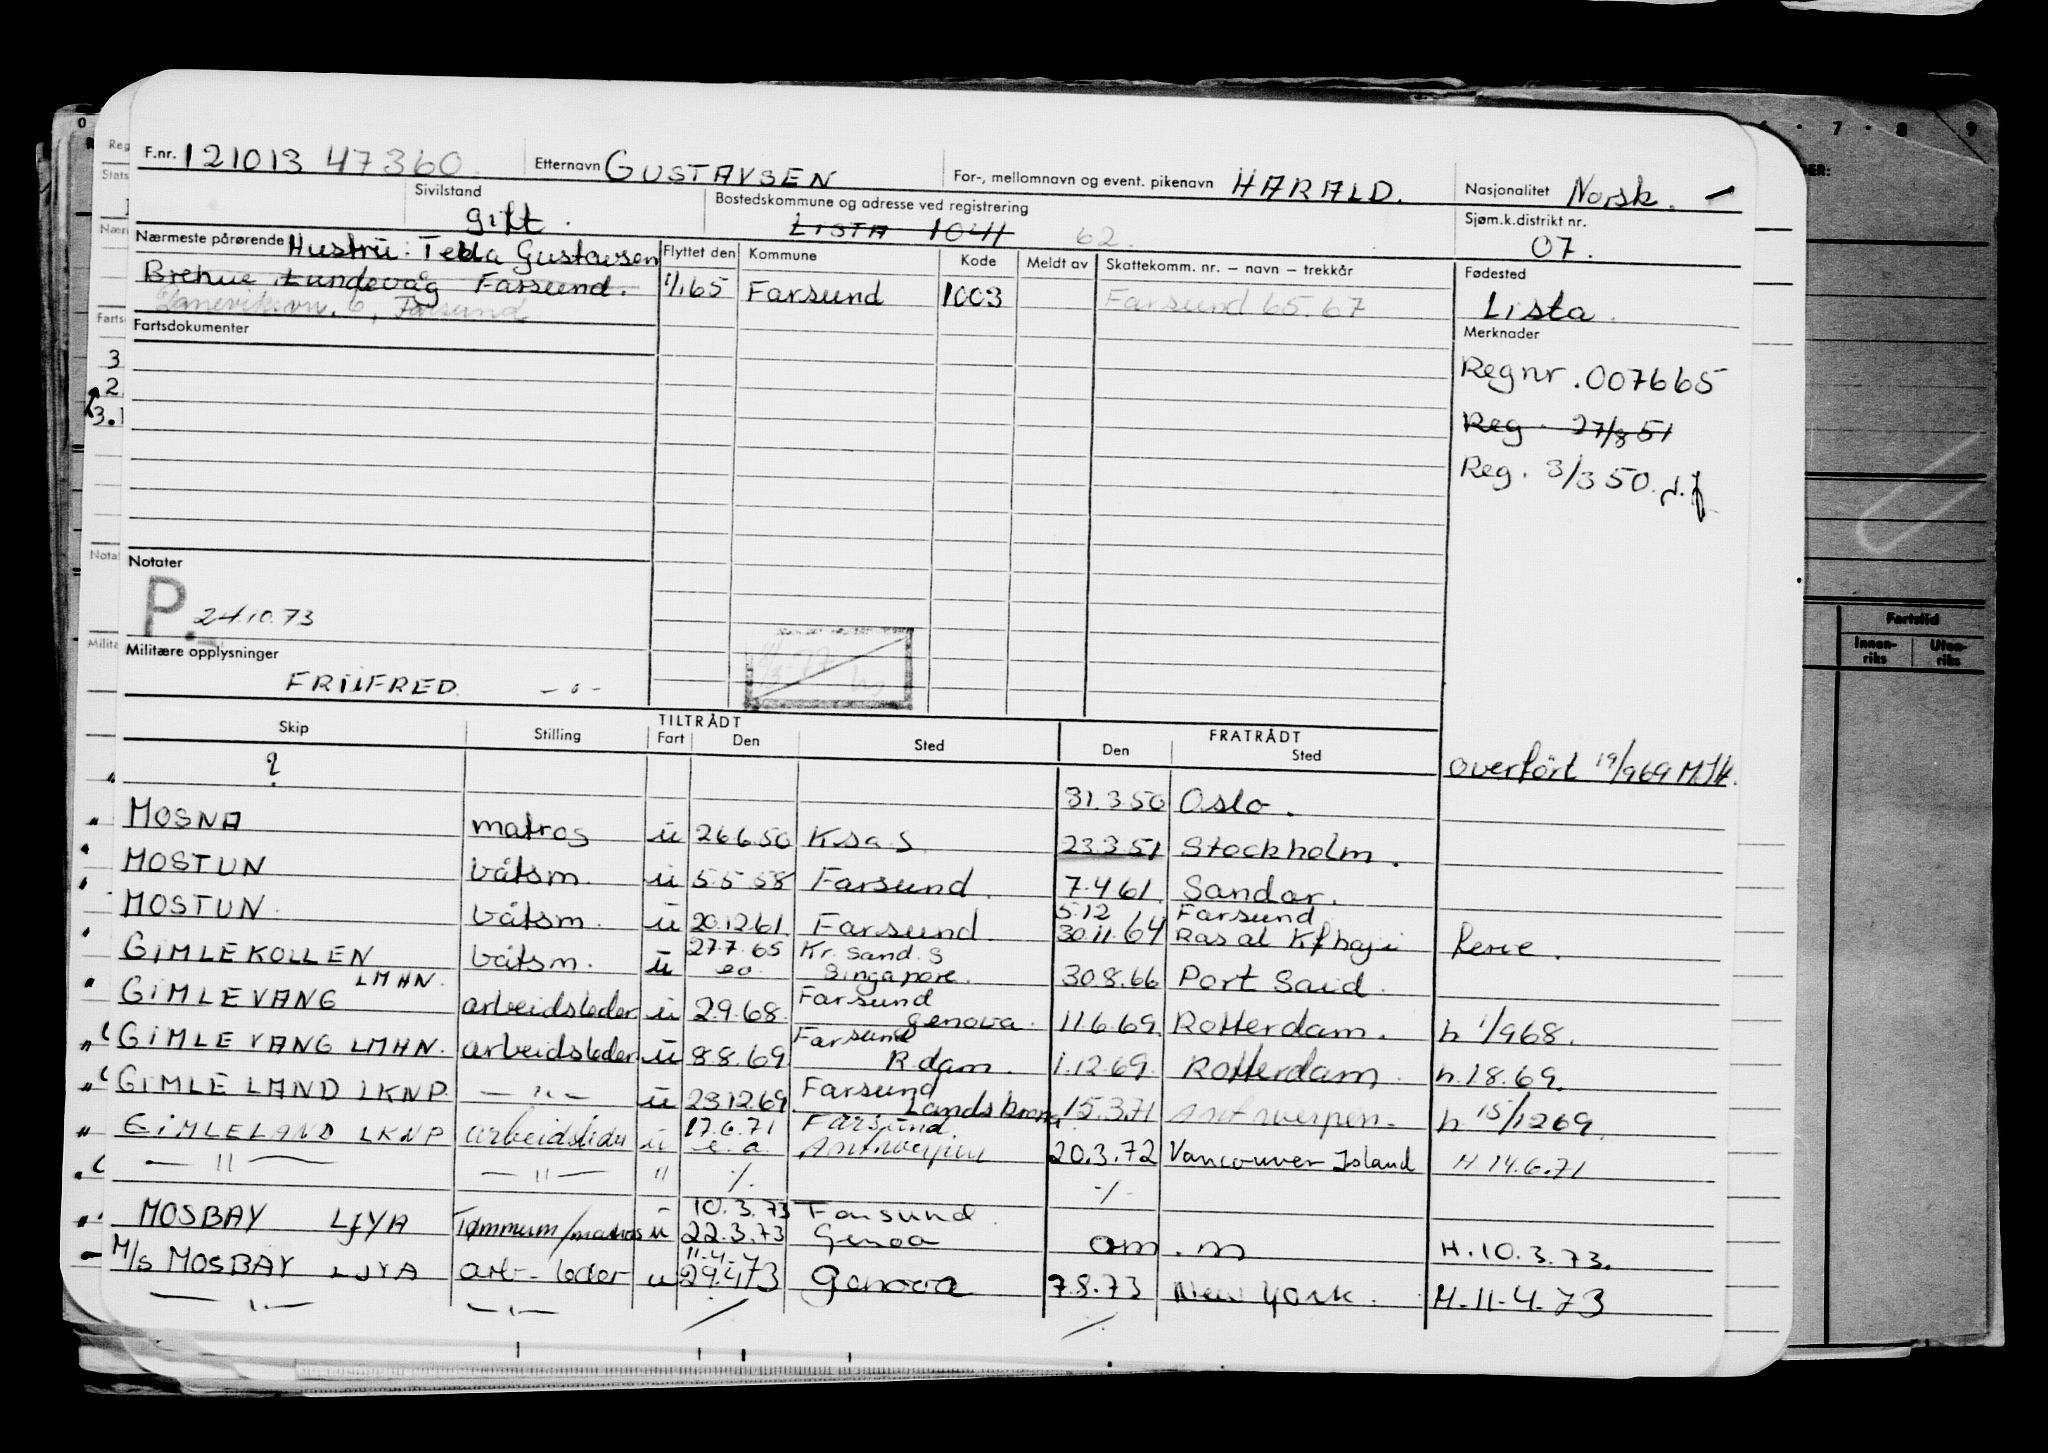 F.nr. 121013 47360. Etternavn GUSTAVSEN For-, mellomnavn og event. pikenavn HARALD. Nasjonalitet Norsk. –
Sivilstand gift. Bostedskommune og adresse ved registrering LISTA 1041 62. Sjøm.k.distrikt nr. 07.
Nærmeste pårørende Hustru: Tekla Gustavsen Flyttet den Kommune Kode Meldt av Skattekomm. nr. – navn – trekkår Fødested
Brehue Lundevåg Farsund. 1/1.65 Farsund 1003 Farsund 65.67 Lista.
6, Farsund
Fartsdokumenter Merknader
Regnr. 007665
Reg. 27/8 51
Reg. 3/3 50.
Notater
P. 24.10.73
Militære opplysninger
FRIIFRED. -o-
TILTRÅDT FRATRÅDT
Skip Stilling Fart Den Sted Den Sted
? overført 19/969
31.3.50 Oslo.
MOSNA matros u 26.6.50 Kr.sa.S 23.3.51 Stockholm.
MOSTUN båtsm. u 5.5.58 Farsund. 7.4.61 Sandar.
5.12 Farsund
MOSTUN. båtsm. u 20.12.61 Farsund. 30.11.64 Ras al Khafji Ferie.
27.7.65 Kr. Sand. S
GIMLEKOLLEN båtsm. u eo. Singapore. 30.8.66 Port Said.
LMHN. Farsund
GIMLEVANG arbeidsleder u 2.9.68. Genova. 11.6.69. Rotterdam. h 1/968.
Farsund
GIMLE VANG LMHN. arbeidsleder u 8.8.69 R.dam. 1.12.69. Rotterdam. h.1.8.69.
Farsund
GIMLE LAND LKNP. — " — u 23.12.69 Landskrona 15.3.71 Antwerpen. h 15/1269.
17.6.71 Farsund
GIMLELAND LKNP arbeidsleder u e.a. Antwerpen 20.3.72 Vancouver Island H 14.6.71
— " — — " — " ./. ./.
10.3.73 Farsund.
MOSBAY LJYA Tømmerm/matros u 22.3.73 Genoa om. m H.10.3.73.
11.4.73
M/s MOSBAY LJYA arb-leder u 29.4.73 Genova 7.8.73 New York. H.11-4.73
— " — — " — ./. ./.
Fartstid
Innen-riks Uten-riks